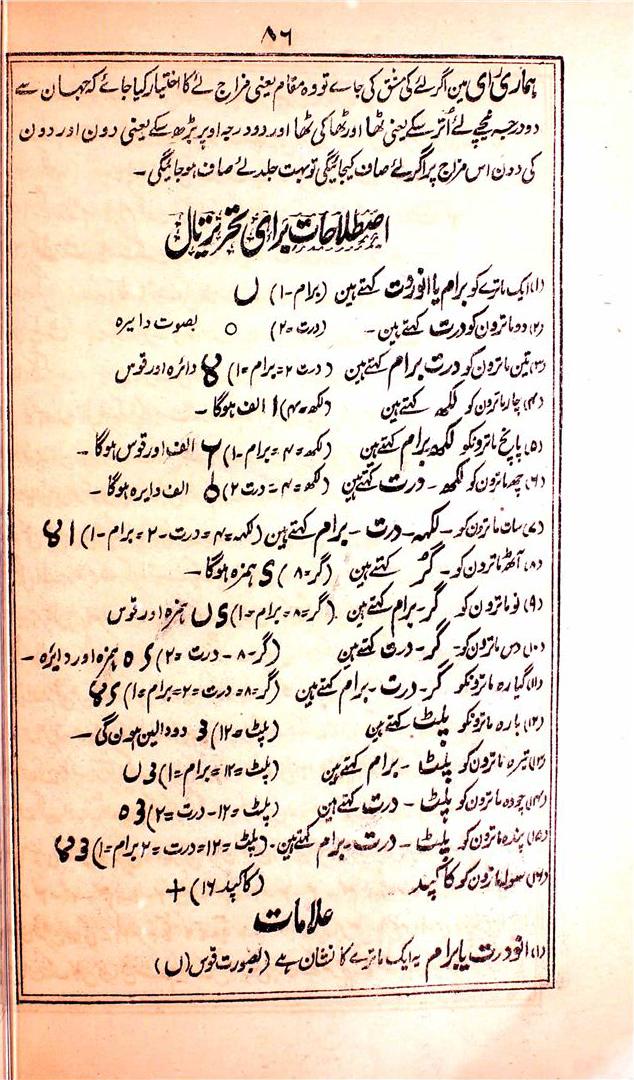 ۸۶
ہماری رای مین اگر لے کی مشق کی جاے تو وہ مقام یعنی مزاج لے کا اختیار کیا جائے کہ جہان سے
دو درجہ نیچے لئے اُتر سکے یعنی ٹھا اور ٹھا کی ٹھا اور دو درجہ اوپر پڑھ سکے یعنی دون اور دون
کی دون اس مزاج پر اگر لے صاف کیجائیگی تو بہت جلد لے صاف ہو جائیگی ۔
اصطلاحات برای تحریر تال
(۱) ایک ماترے کو برام یا انودرت کہتے ہین (برام=۱) ں
(۲) دو ماترون کو درت کہتے ہین ۔ (درت=۲) ○ بصوت دایرہ
(۳) تین ماترون کو درت برام کہتے ہین (درت ۲=برام=۱) دائرہ اور قوس
(۴) چار ماترون کو لگھ کہتے ہین (لگھ=۴) ا الف ہوگا ۔
(۵) پانچ ماترونکو لگھ برام کہتے ہین (لگھ=۴=برام-۱) الف اور قوس ہوگا ۔
(۶) چھ ماترون کو لگھ - درت کہتے ہین (لگھ=۴=درت ۲) الف دایرہ ہوگا ۔
(۷) سات ماترون کو - لگہہ - درت - برام کہتے ہین (لگہہ=۴=درت-۲=برام-۱)
(۸) آٹھ ماترون کو - گُر کہتے ہین (گر=۸) ء ہمزہ ہوگا ۔
(۹) نو ماترون کو گر - برام کہتے ہین (گر=۸=برام=۱) ء ں ہمزہ اور قوس
(۱۰) دس ماترون کو - گر - درت کہتے ہین (گر-۸-درت=۲) ء ○ ہمزہ اور دایرہ ۔
(۱۱) گیارہ ماترونکو گر - درت - برام کہتے ہین (گر=۸=درت=۲=برام=۱)
(۱۲) بارہ ماترونکو پلٹ کہتے ہین (پلٹ=۱۲) 3 دو دالین ہون گی ۔
(۱۳) تیرہ ماترون کو پلٹ - برام کہتے ہین (پلٹ=۱۲=برام=۱) 3 ں
(۱۴) چودہ ماترون کو پلٹ - درت کہتے ہین (پلٹ=۱۲-درت=۲) 3 ○
(۱۵) پندہ ماترون کو پلٹ - درت - برام کہتے ہین ۔ (پلٹ=۱۲=درت=۲ برام=۱)
(۱۶) سولہ ماترون کو کاکپد (کاکپد ۱۶) +
علامات
(۱) انودرت یا برام یہ ایک ماترے کا نشان ہے (بصورت قوس (ں)